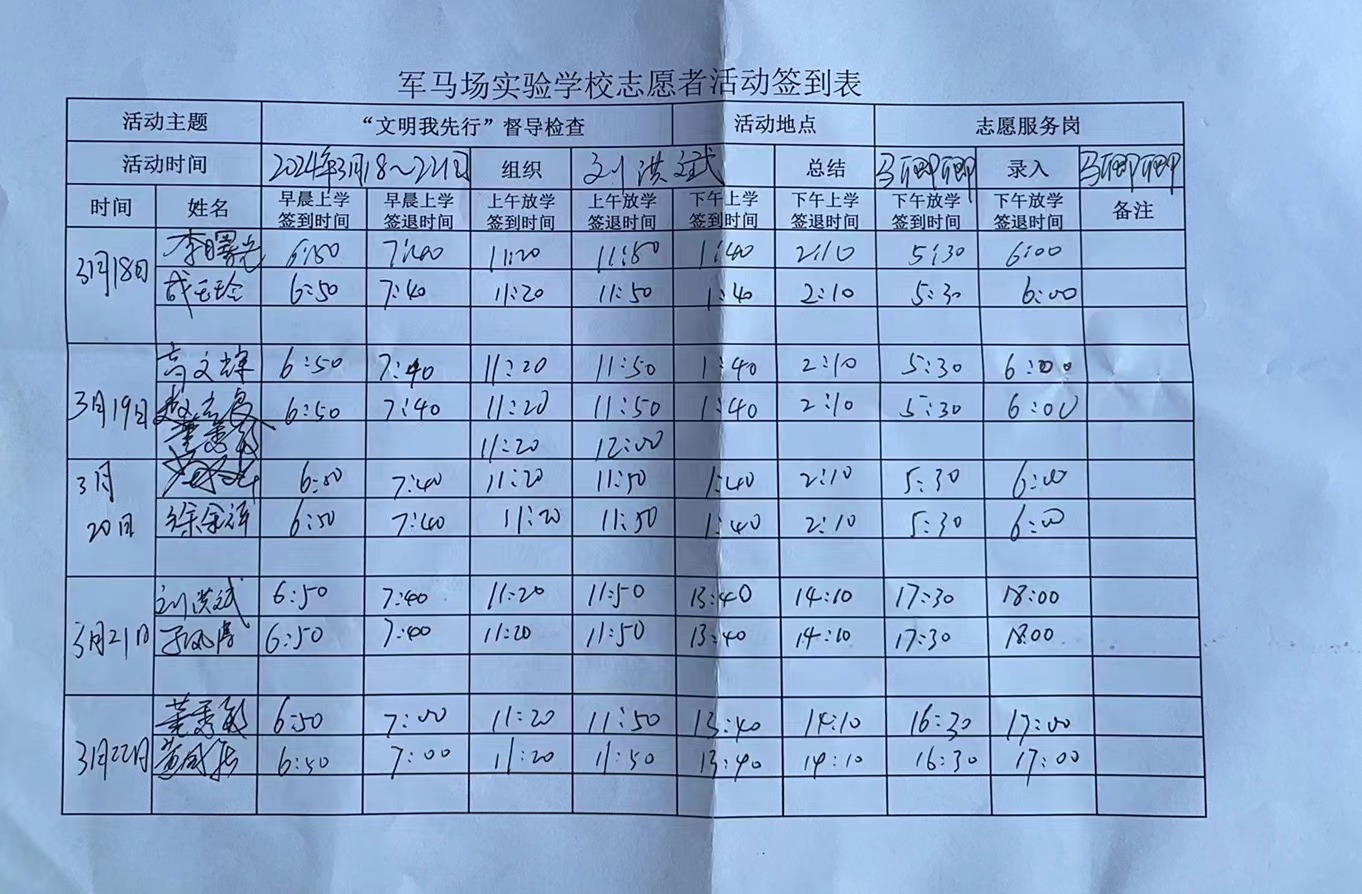 军马场实验学校志愿者活动签到表
活动主题 “文明我先行”督导检查 活动地点 志愿服务岗
活动时间 2024年3月18~22日 组织 刘洪斌 总结 马卿卿 录入 马卿卿
时间 姓名 早晨上学签到时间 早晨上学签退时间 上午放学签到时间 上午放学签退时间 下午上学签到时间 下午上学签退时间 下午放学签到时间 下午放学签退时间 备注
3月18日 李曙光 6:50 7:40 11:20 11:50 1:40 2:10 5:30 6:00
成玉玲 6:50 7:40 11:20 11:50 1:40 2:10 5:30 6:00
3月19日 高文辉 6:50 7:40 11:20 11:50 1:40 2:10 5:30 6:00
6:50 7:40 11:20 11:50 1:40 2:10 5:30 6:00
董秀敏 11:20 12:00
3月20日 6:50 7:40 11:20 11:50 1:40 2:10 5:30 6:00
徐金祥 6:50 7:40 11:20 11:50 1:40 2:10 5:30 6:00
3月21日 刘洪斌 6:50 7:40 11:20 11:50 13:40 14:10 17:30 18:00
6:50 7:40 11:20 11:50 13:40 14:10 17:30 18:00
3月22日 董秀敏 6:50 7:00 11:20 11:50 13:40 14:10 16:30 17:00
6:50 7:00 11:20 11:50 13:40 14:10 16:30 17:00